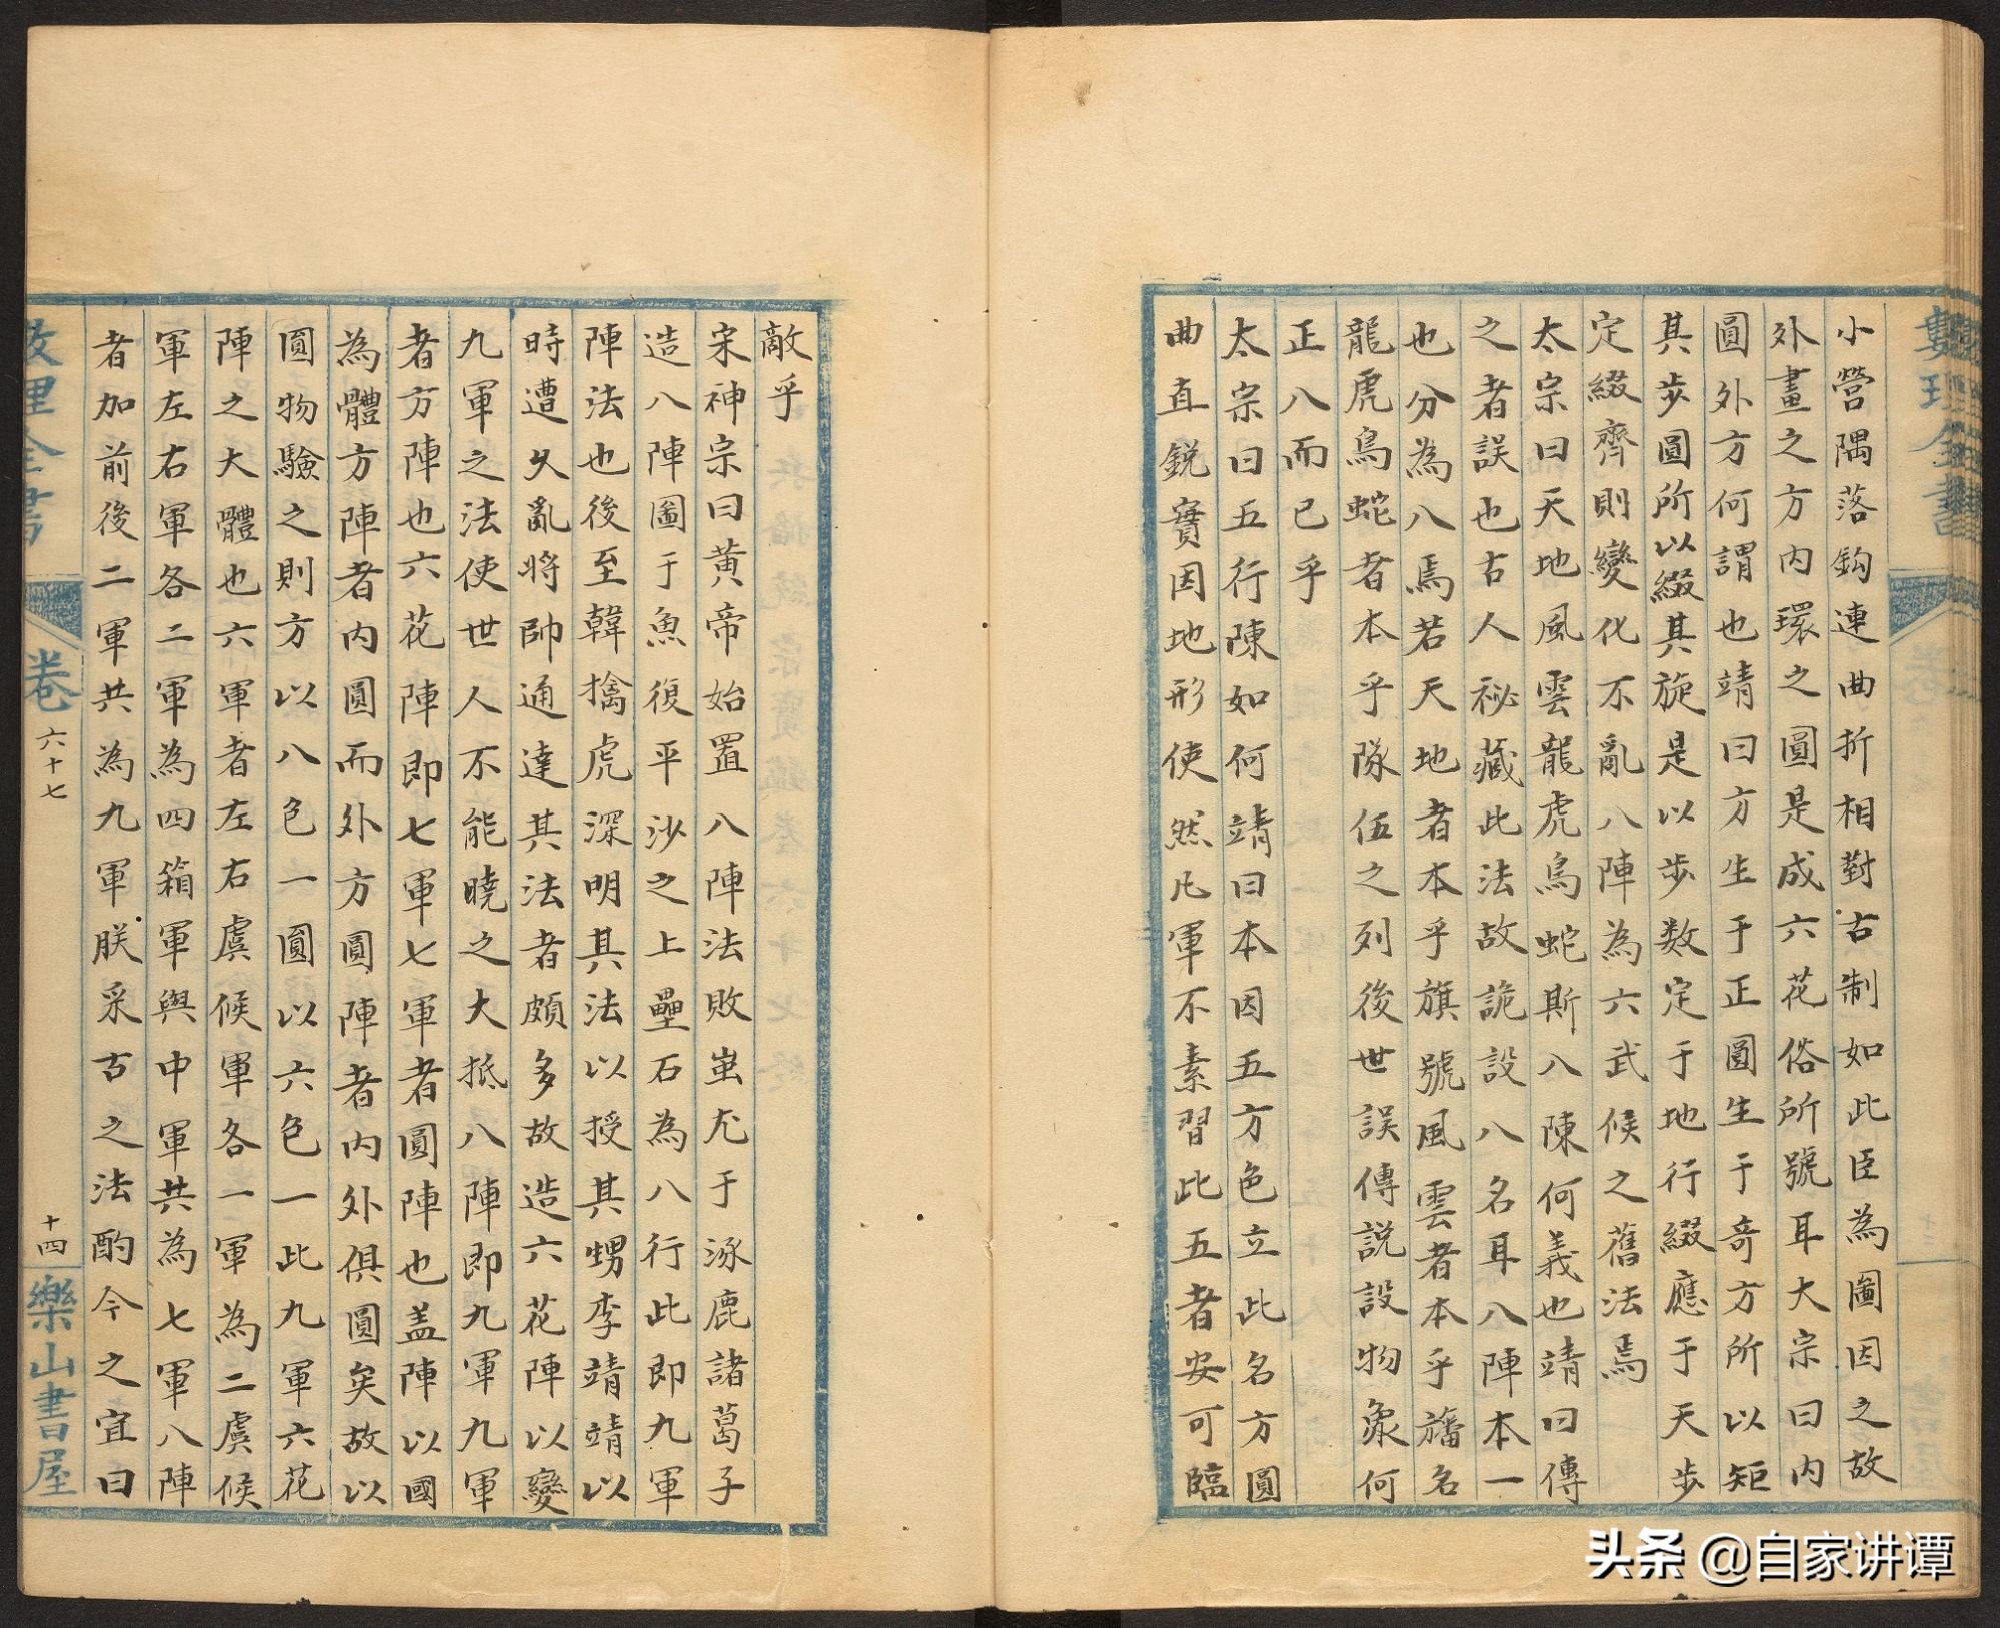 小營隅落鈎連曲折相對古制如此臣為圖因之故
外畫之方內環之圓是成六花俗所號耳大宗曰內
圓外方何謂也靖曰方生于正圓生于奇方所以矩
其步圓所以綴其旋是以步数定于地行綴應于天步
定綴齊則變化不亂八陣為六武候之舊法焉
太宗曰天地風雲龍虎鳥蛇斯八陳何義也靖曰傳
之者誤也古人祕藏此法故詭設八名耳八陣本一
也分為八焉若天地者本乎旗號風雲者本乎旛名
龍虎鳥蛇者本乎隊伍之列後世誤傳説設物象何
正八而已乎
太宗曰五行陳如何靖曰本因五方色立此名方圓
曲直銳實因地形使然凡軍不素習此五者安可臨
敵乎
宋神宗曰黃帝始置八陣法敗蚩尤于涿鹿諸葛子
造八陣圖于魚復平沙之上壘石為八行此即九軍
陣法也後至韓擒虎深明其法以授其甥李靖靖以
時遭久亂將帥通達其法者頗多故造六花陣以變
九軍之法使世人不能曉之大抵八陣即九軍九軍
者方陣也六花陣即七軍七軍者圓陣也盖陣以國
為體方陣者內圓而外方圓陣者內外俱圓矣故以
圓物驗之則方以八色一圓以六色一此九軍六花
陣之大體也六軍者左右虞候軍各一軍為二虞候
軍左右軍各二軍為四箱軍與中軍共為七軍八陣
者加前後二軍共為九軍朕采古之法酌今之宜曰
卷 六十七 十四 樂山書屋
头条 @自家讲谭